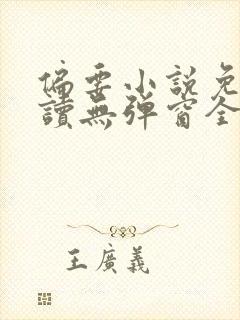 偏要小說免
讀無彈窗全
王廣義